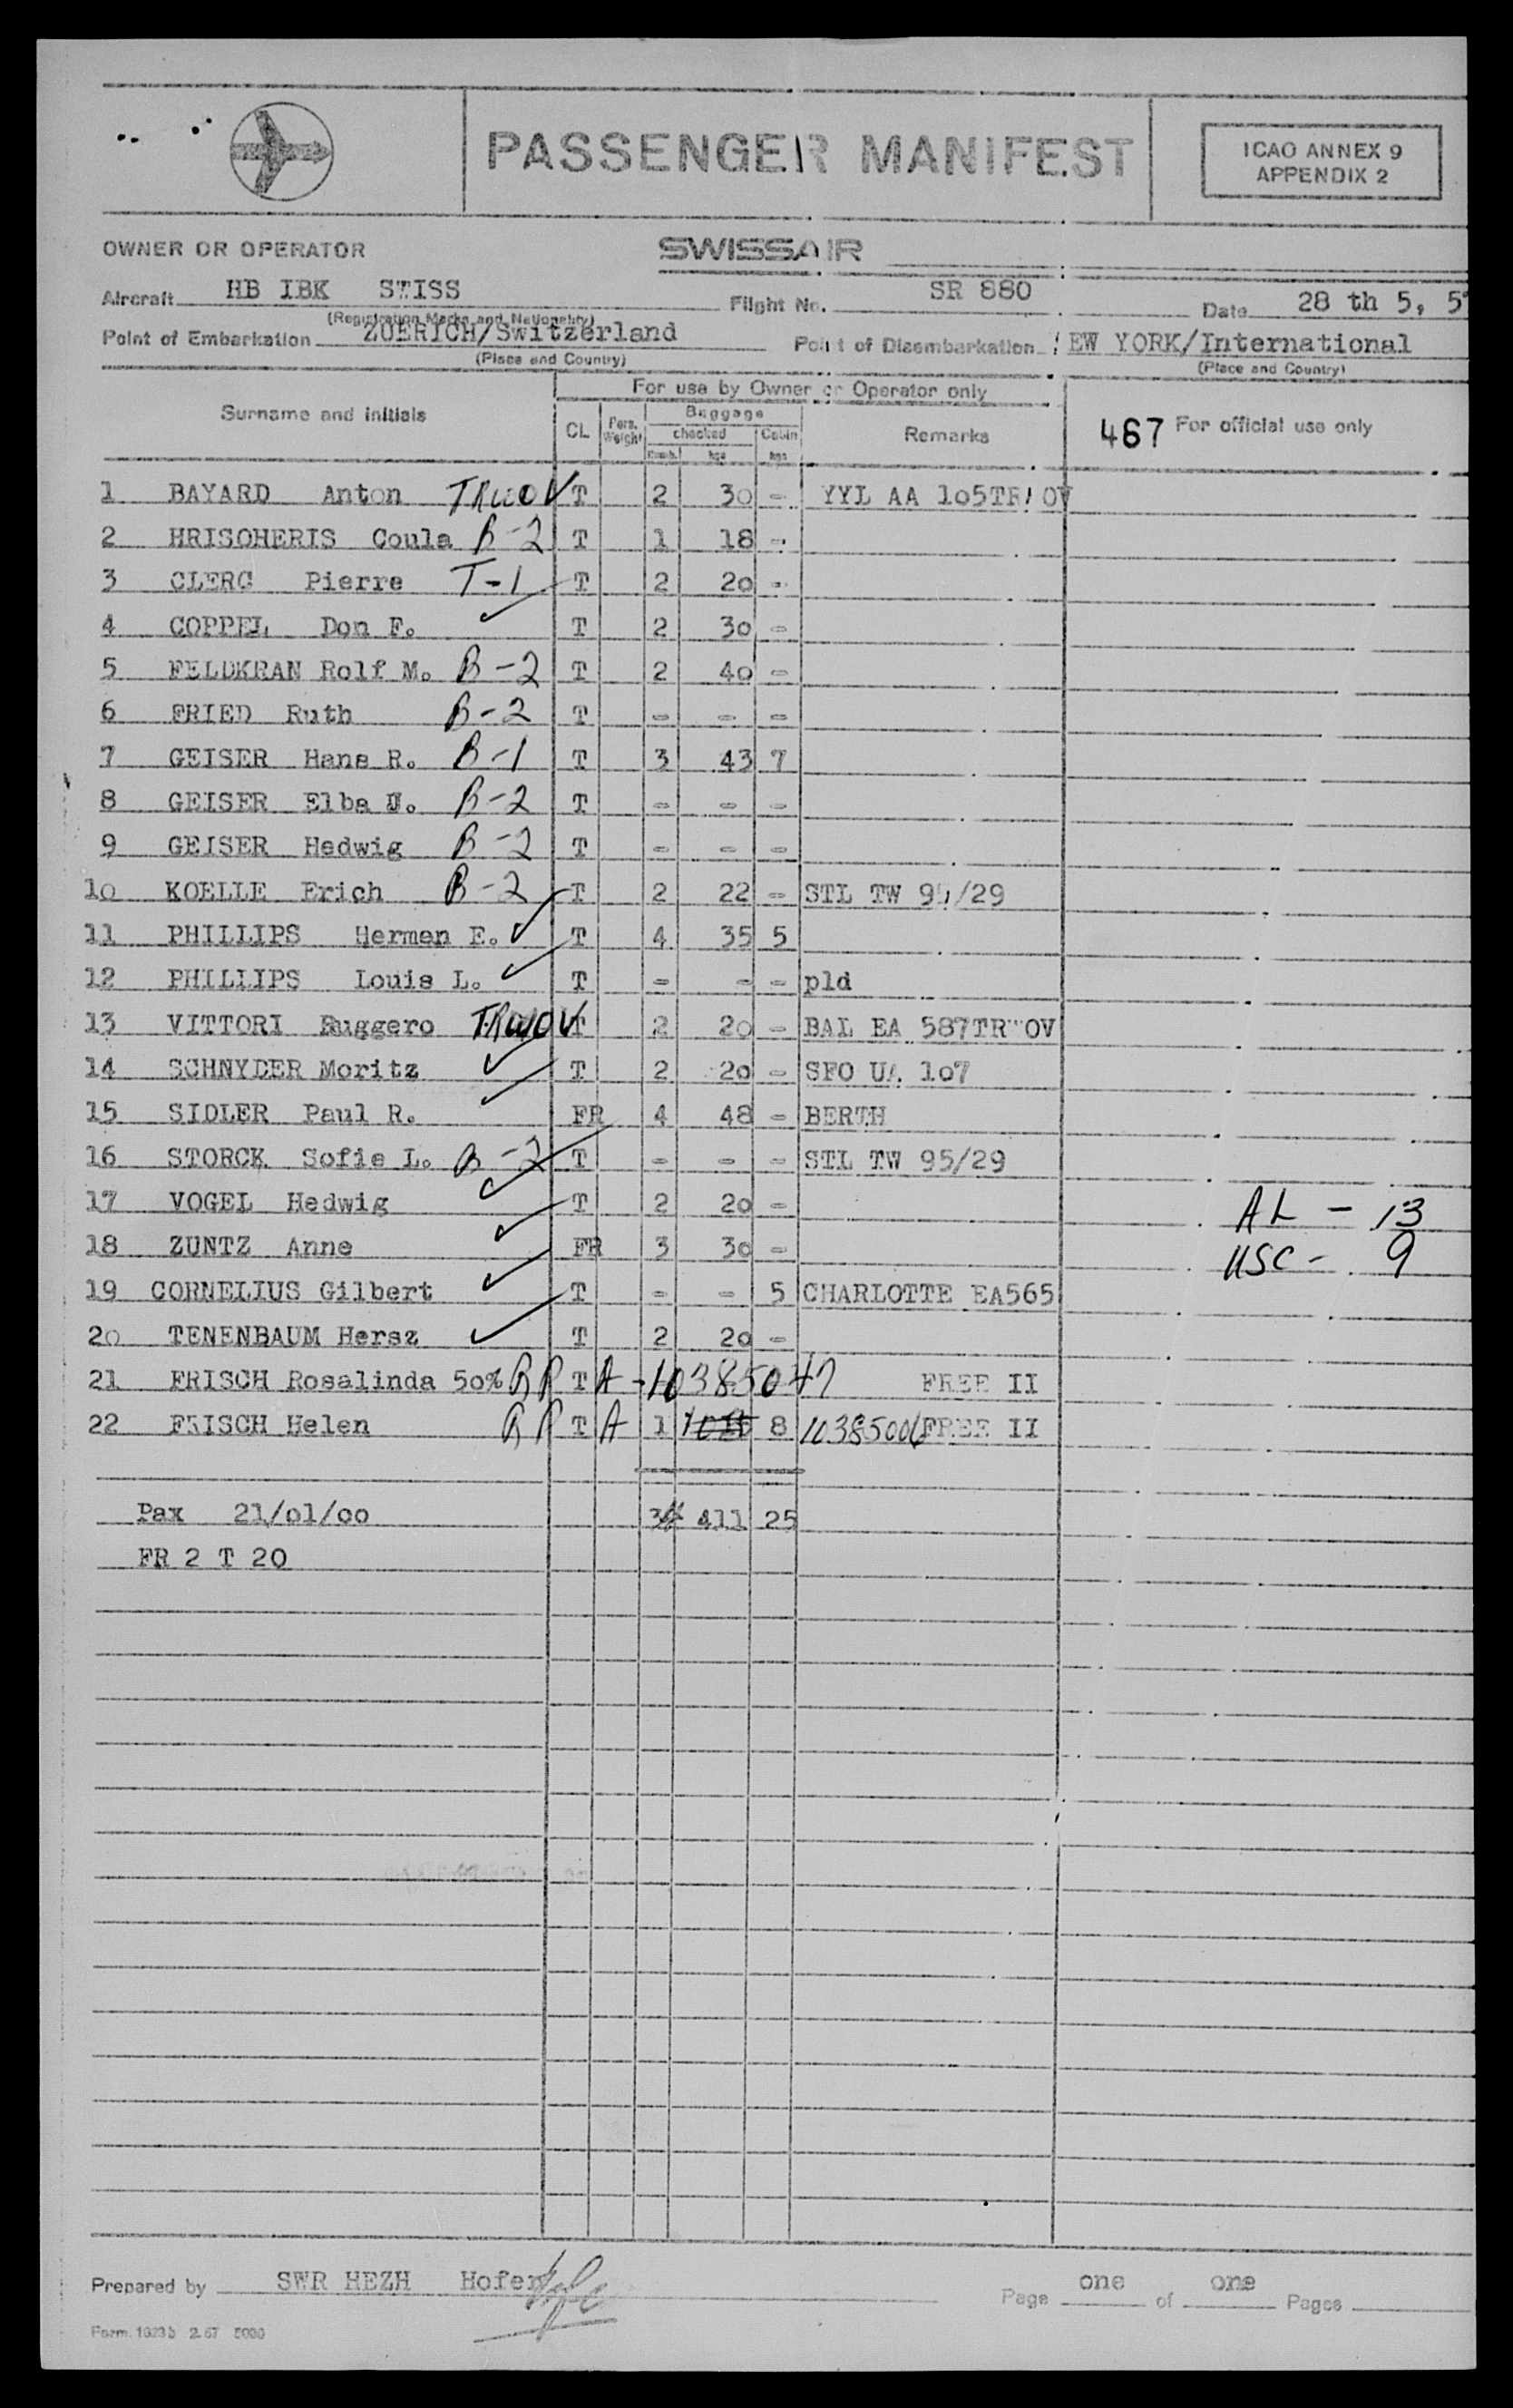 PASSENGER MANIFEST
ICAO ANNEX 9
APPENDIX 2
OWNER OR OPERATOR SWISSAIR
Aircraft HB IBK SWISS Flight No. SR 880 Date 28 th 5, 5
(Registration Marks and Nationality)
Point of Embarkation ZUERICH/Switzerland Point of Disembarkation EW YORK/International
(Place and Country) (Place and Country)
For use by Owner or Operator only
Surname and initials CL Pers. Weight Baggage checked Cabin kgs kgs Remarks 467 For official use only
1 BAYARD Anton TRWOV T 2 30 - YYL AA 105TR OV
2 HRISOHERIS Coula B-2 T 1 18 -
3 CLERC Pierre T-1 T 2 20 -
4 COPPEL Don F. ✓ T 2 30 -
5 FELDKRAN Rolf M. B-2 T 2 40 -
6 FRIED Ruth B-2 T - - -
7 GEISER Hans R. B-1 T 3 43 7
8 GEISER Elba U. B-2 T - - -
9 GEISER Hedwig B-2 T - - -
10 KOELLE Erich B-2 T 2 22 - STL TW 95/29
11 PHILLIPS Herman E. ✓ T 4 35 5
12 PHILLIPS Louis L. ✓ T - - - pld
13 VITTORI Ruggero TRWOV T 2 20 - BAL EA 587TR OV
14 SCHNYDER Moritz ✓ T 2 20 - SFO UA 107
15 SIDLER Paul R. ✓ FR 4 48 - BERTH
16 STORCK Sofie L. B-2 T - - - STL TW 95/29
17 VOGEL Hedwig ✓ T 2 20 -
AL - 13
18 ZUNTZ Anne ✓ FR 3 30 -
USC - 9
19 CORNELIUS Gilbert ✓ T - - 5 CHARLOTTE EA565
20 TENENBAUM Hersz ✓ T 2 20 -
21 FRISCH Rosalinda 50% RP T A-10385047 FREE II
22 FRISCH Helen RP T A 1 8 FREE II
Pax 21/01/00 411 25
FR 2 T 20
Prepared by SWR HEZH Hofer Page one of one Pages
Form. 1023b 2.57 5000